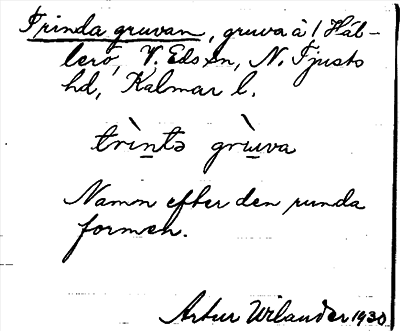 Trinda gruvan, gruva å! Häl-
lerö, V. Eds sn, N. Tjusts
hd, Kalmar l.
trìntə grùva
Namn efter den runda
formen.
Artur Wilander 1930